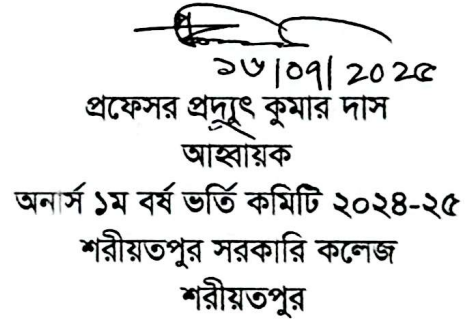 ১৬/০৭/২০২৫
প্রফেসর প্রদ্যুৎ কুমার দাস
আহ্বায়ক
অনার্স ১ম বর্ষ ভর্তি কমিটি ২০২৪-২৫
শরীয়তপুর সরকারি কলেজ
শরীয়তপুর